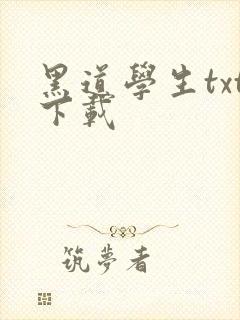 黑道學生txt
下載
筑夢者